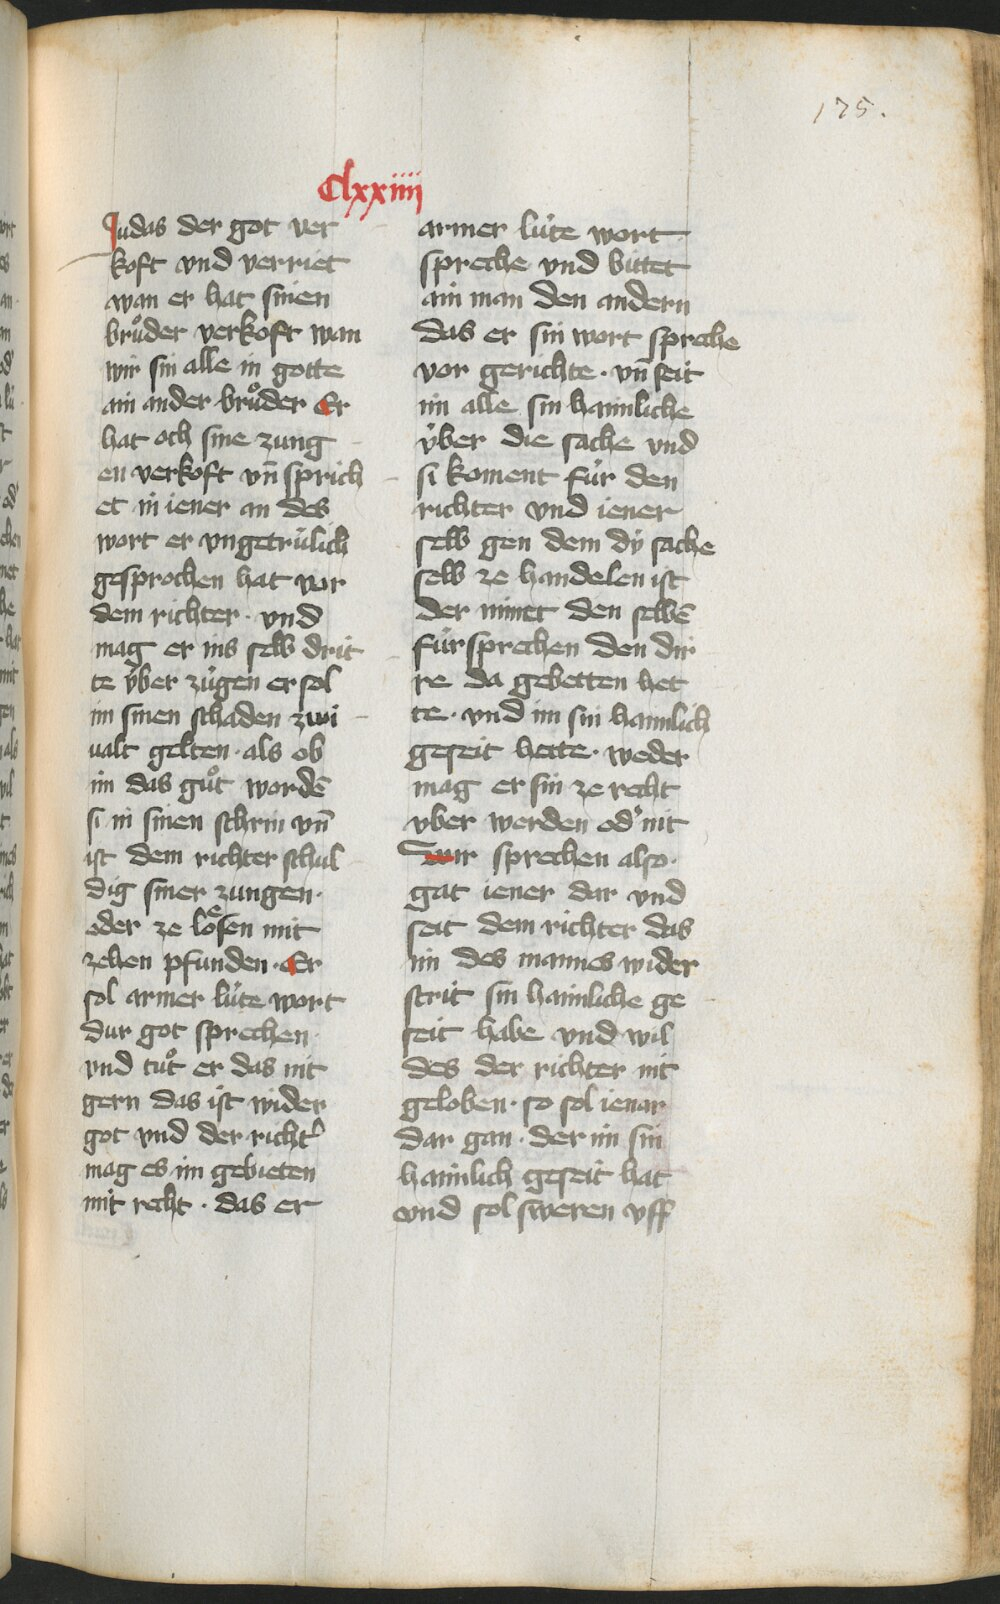 175.
Clxxiiii
Judas der got ver
koft vnd verriet
wan er hat sinen
brůder verkoft wan
wir sin alle in gotte
ain ander brůder Er
hat och sine zung
en verkoft vn̄ sprich
et in iener an des
wort er vngetrülich
gesprochen hat vor
dem richter · vnd
mag er ins selb drit
te ÿber zügen er sol
im sinen schaden zwi
ualt gelten · als ob
im das gůt wordē
si in sinen schrin vn̄
ist dem richter schul
dig siner zungen ·
oder ze loͤsen mit
zehen pfunden · Er
sol armer lüte wort
dur got sprechen ·
vnd tůt er das nit
gern das ist wider
got vnd der richt'
mag es im gebieten
mit recht · das er
armer lüte wort
spreche vnd bittet
ain man den andern
das er sin wort spreche
vor gerichte · vn̄ seit
im alle sin haimliche
ÿber die sache vnd
si koment für den
richter vnd iener
selb gen dem dÿ sache
selb ze handelen ist
der nimet den selbē
fürsprechen den dir
re da gebetten het
te · vnd im sin haimlich
geseit hette · weder
mag er sin ze recht
vber werden od' nit
Wir sprechen also ·
gat iener dar vnd
seit dem richter das
im des mannes wider
strit sin haimliche ge
seit habe vnd wil
des der richter nit
geloben · so sol ienar
dar gan · der im sin
haimlich geseit hat
vnd sol sweren vff